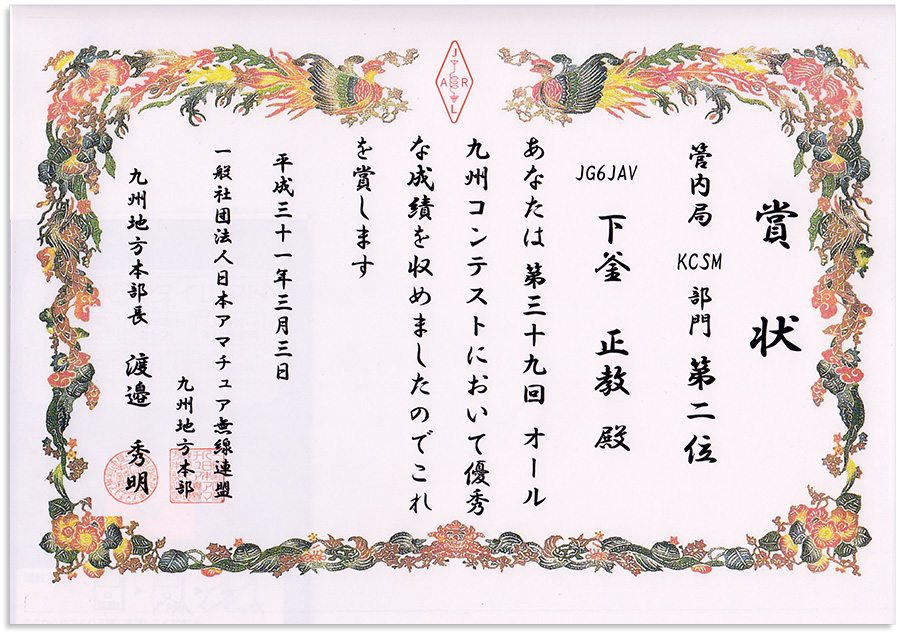 JARL
賞状
管内局 KCSM 部門 第二位
JG6JAV 下釜 正教 殿
あなたは 第三十九回 オール
九州コンテストにおいて優秀
な成績を収めましたのでこれ
を賞します
平成三十一年三月三日
一般社団法人日本アマチュア無線連盟
九州地方本部
九州地方本部長 渡邉 秀明